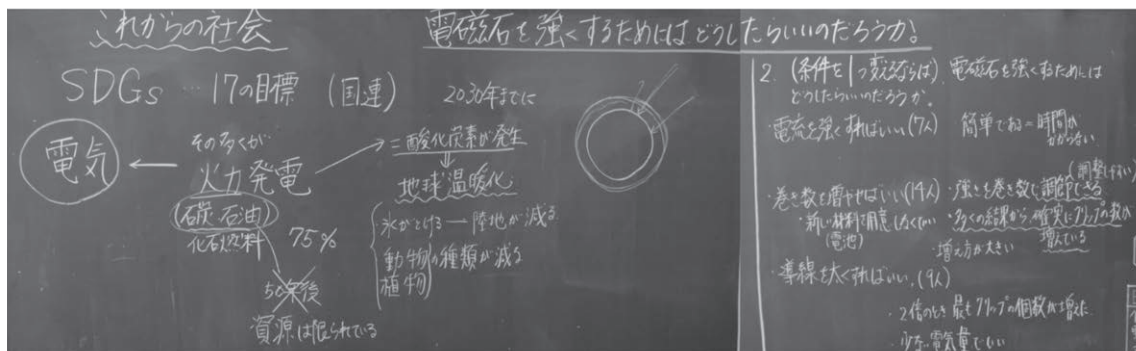 これからの社会
電磁石を強くするためにはどうしたらいいのだろうか!
SDGs … 17の目標 (国連) 2030年までに
電気
その多くが
火力発電
(石炭, 石油)
化石燃料
75%
50年後
資源は限られている
二酸化炭素が発生
地球温暖化
氷がとける ― 陸地が減る
動物
植物
の種類が減る
2. (条件を1つ変えるならば) 電磁石を強くするためには
どうしたらいいのだろうか。
・電流を強くすればいい (7人)
簡単である=時間が
かからない
(調整しやすい)
・巻き数を増やせばいい (14人)
・強さを巻き数で調節できる
・新しい材料を用意しなくてよい
(電池)
・多くの結果から、確実にクリップの数が
増えている
・増え方が大きい
・導線を太くすればいい。(9人)
・2倍のとき最もクリップの個数が増えた
・少ない電気量でいい